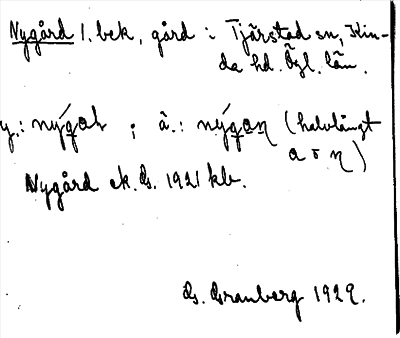 Nygård 1. bek, gård i Tjärstad sn, Kin-
da hd. Ögl. län.
y.: nýgaṇ ; ä.: nýgaŋ (halvlångt
a o ŋ)
Nygård ek. G. 1921 kb.
G. Granberg 1929.